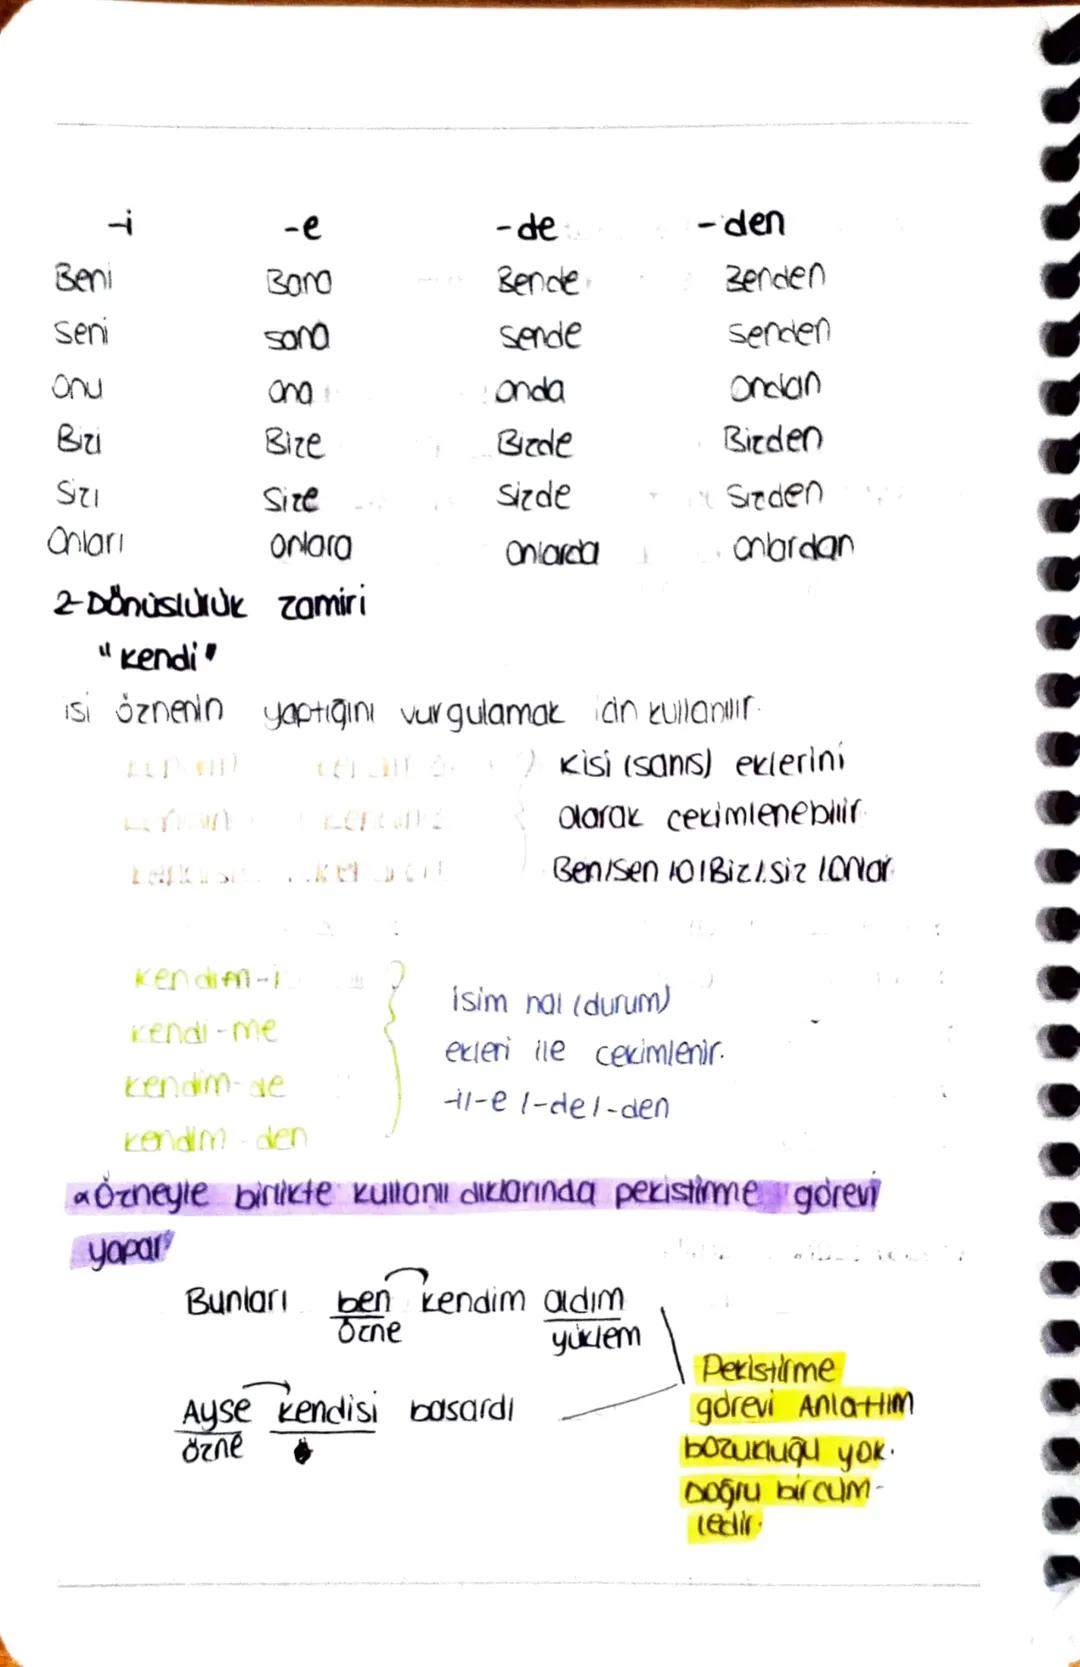 -i -e -de -den
Beni Bana Bende Benden
Seni sana sende senden
Onu ona onda ondan
Bizi Bize Bizde Bizden
Sizi Size Sizde Sizden
Onları onlara onlarda onlardan
2-Dönüslülük zamiri
"kendi"
isi öznenin yaptığını vurgulamak icin kullanılır.
Kisi (sahıs) eklerini
alarak cekimlenebilir.
Ben/Sen /O/Biz/Siz /Onlar
kendim-i
kendi-me
kendim-de
kendim-den
isim hal (durum)
ekleri ile cekimlenir.
-i/-e /-de/-den
Özneyle birlikte kullanıldıklarında pekistirme görevi
yapar
Bunları ben kendim aldım
özne yüklem
Ayse kendisi basardı
özne
Pekistirme
görevi Anlatım
bozukluğu yok.
Doğru bir cüm-
ledir.